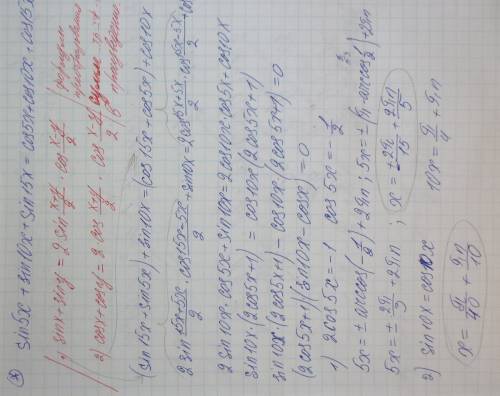 sin5x + sin10x + sin15x = cos5x + cos10x + cos15x
1) sinx + siny = 2sin (x+y)/2 · cos (x-y)/2
2) cosx + cosy = 2cos (x+y)/2 · cos (x-y)/2
формулы
преобразования
суммы
в произведение
(sin15x + sin5x) + sin10x = (cos15x + cos5x) + cos10x
2sin (15x+5x)/2 · cos (15x-5x)/2 + sin10x = 2cos (15x+5x)/2 · cos (15x-5x)/2 + cos
2sin10x · cos5x + sin10x = 2cos10x · cos5x + cos10x
sin10x · (2cos5x+1) = cos10x (2cos5x+1)
sin10x · (2cos5x+1) - cos10x · (2cos5x+1) = 0
(2cos5x+1)(sin10x - cos x) = 0
1) 2cos5x = -1 cos5x = -1/2
5x = ± arccos(-1/2) + 2πn ; 5x = ± (π - arccos 1/2) + 2πn
5x = ± 2π/3 + 2πn ; x = ± 2π/15 + 2πn/5
2) sin10x = cos10x 10x = π/4 + πn
x = π/40 + πn/10